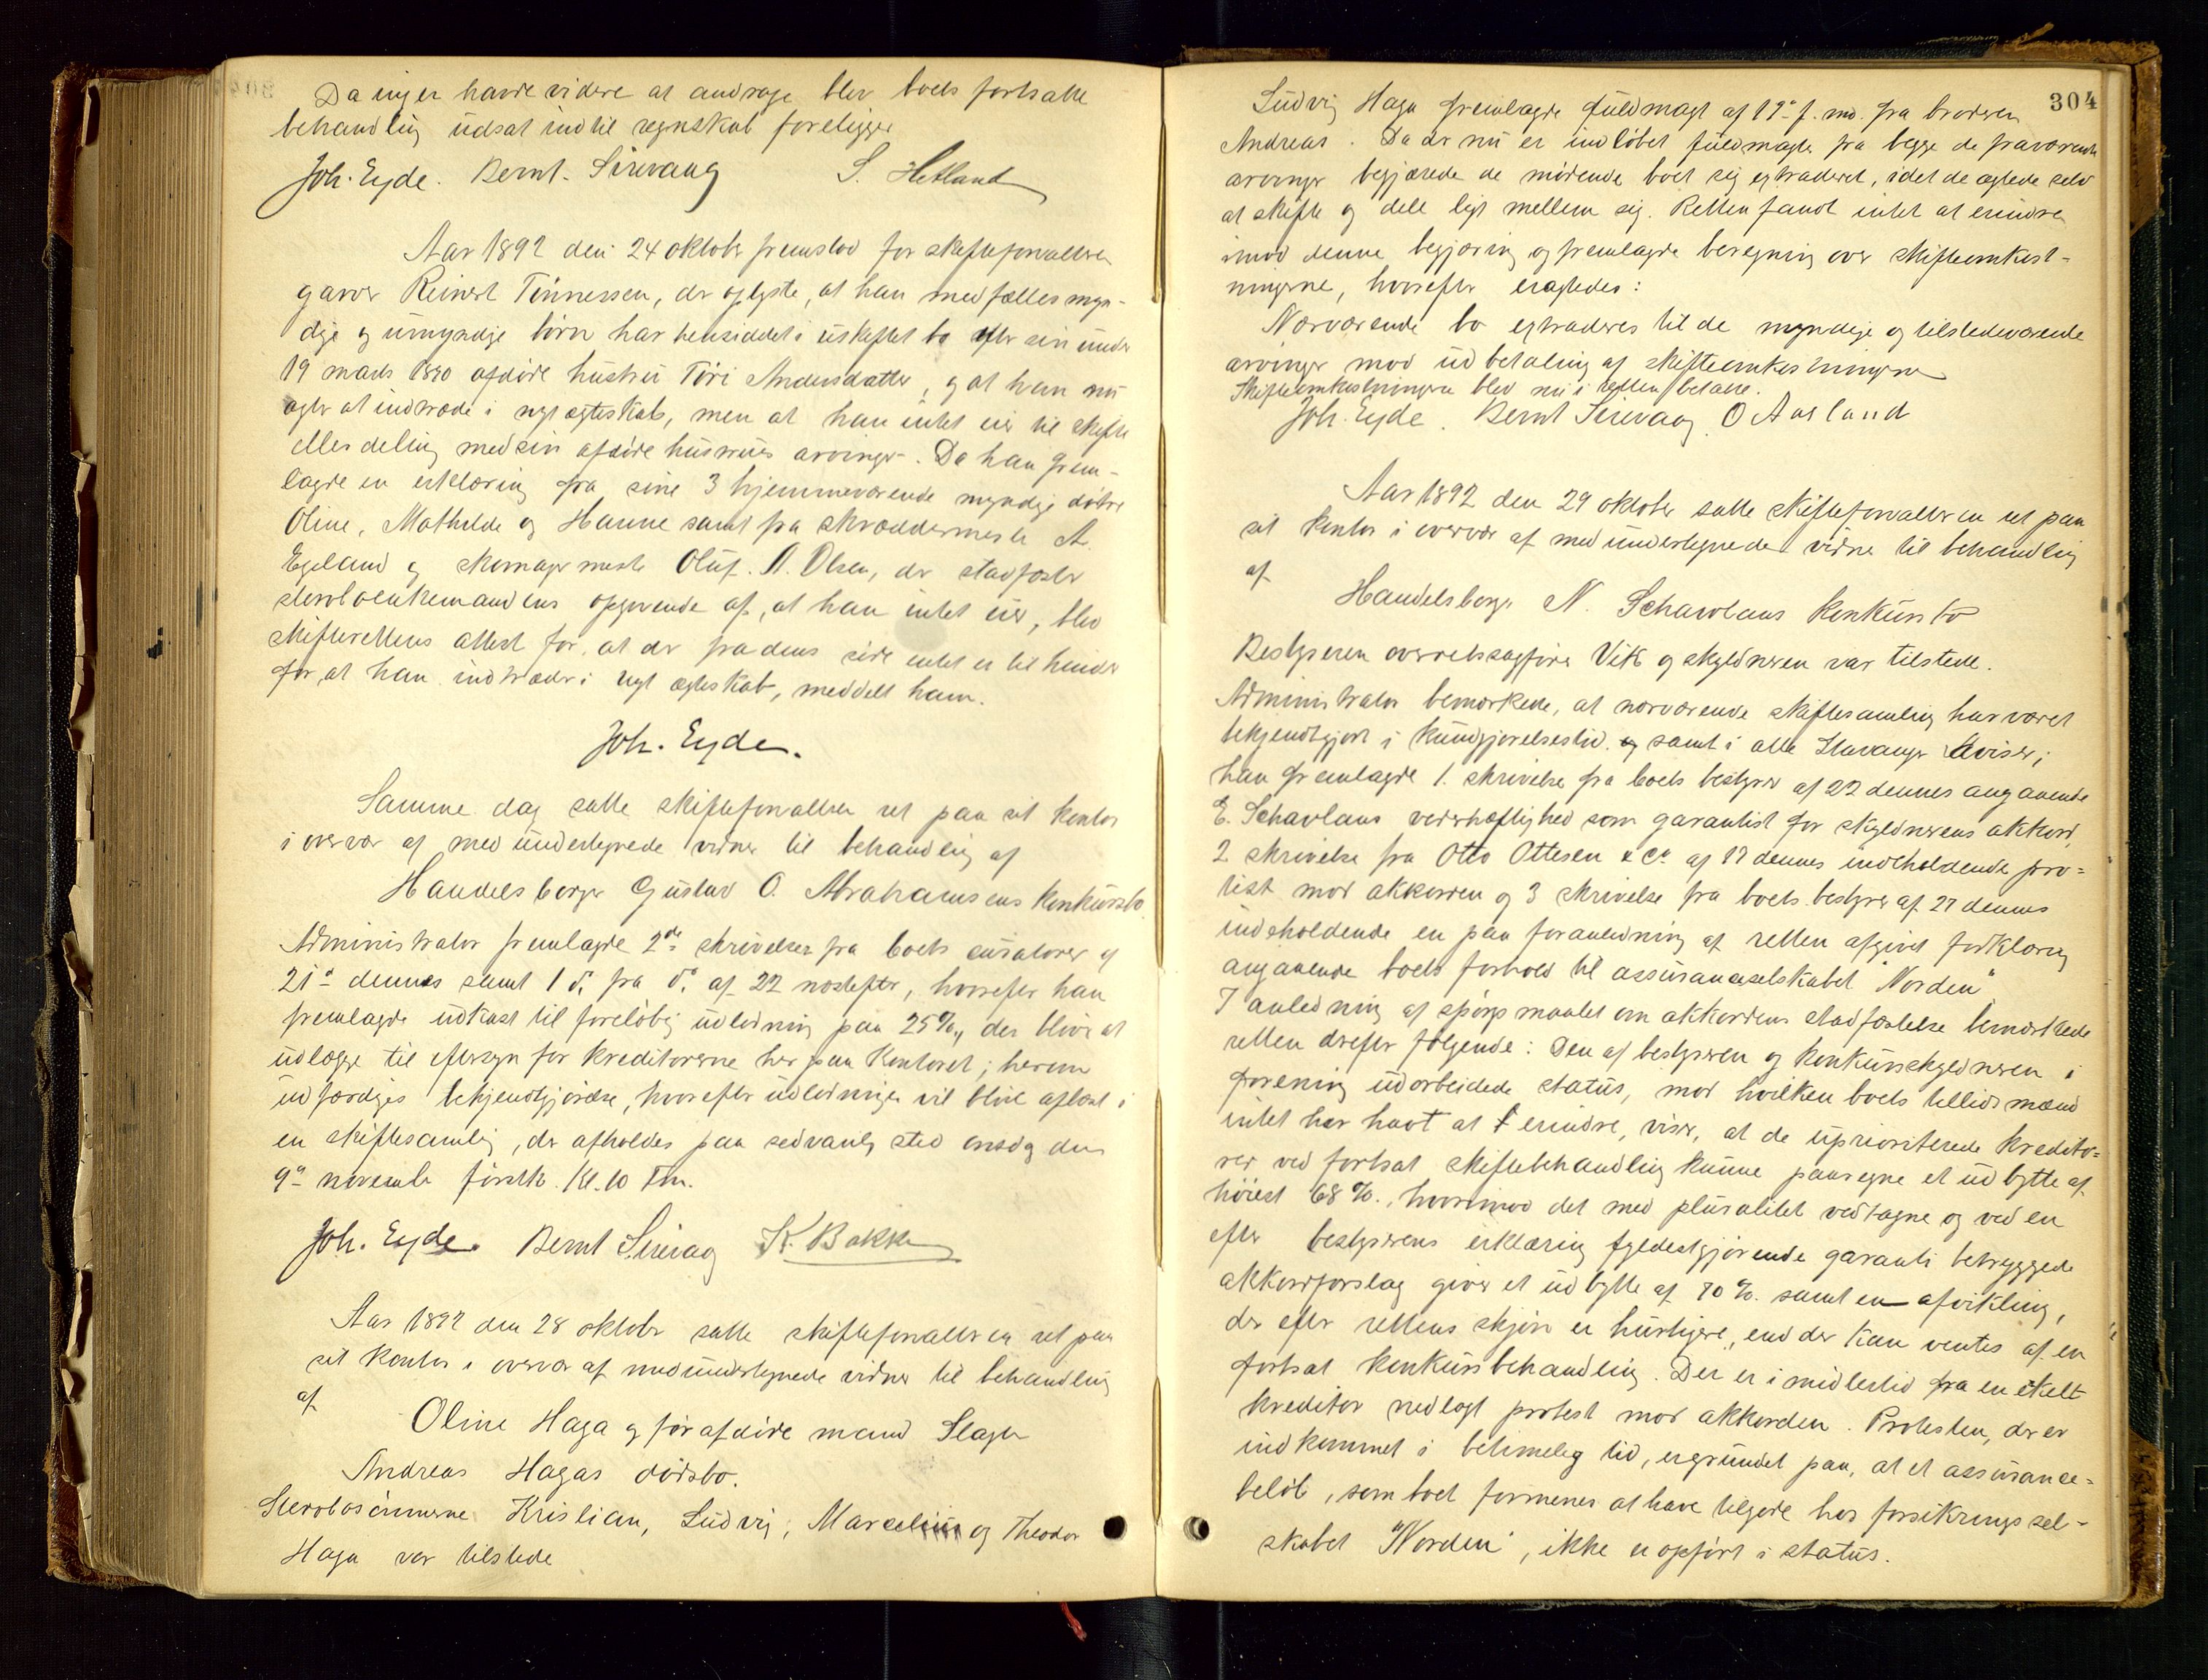 Da ingen havde videre at andrage blev boets fortsatte
behandling udsat indtil regnskab foreligger
Joh. Eyde. Bernt Sirevaag S. Hetland
Aar 1892 den 24 oktober fremstod for skifteforvalteren
garver Reinert Tönnessen, der oplyste, at han med fælles myn-
dige og umyndige börn har hensiddet i uskiftet bo efter sin under
19 marts 1890 afdöde hustru Töri Andersdatter, og at han nu
agter at indtræde i nyt ægteskab, men at han intet eier til skifte
eller deling med sin afdöde hustrues arvinger. Da han frem-
lagde en erklæring fra sine 3 hjemmeværende myndige dötre
Oline, Mathilde og Hanne samt fra skræddermester A.
Egeland og skomagermester Oluf. A. Olsen, der stadfæster
stervboenkemandens opgivende af, at han intet eier, blev
skifterettens attest for, at der fra dens side intet er til hinder
for, at han indtræder i nyt ægteskab, meddelt ham.
Joh. Eyde.
Samme dag satte skifteforvalteren ret paa sit kontor
i overvær af medundertegnede vidner til behandling af
Handelsborger Gustav O. Abrahamsens konkursbo
Administrator fremlagde 2de skrivelser fra boets curatorer af
21de dennes samt 1 do fra do af 22 næstefter, hvorefter han
fremlagde udkast til foreløbig udlodning paa 25%, der bliver at
udlægge til eftersyn for kreditorerne her paa Kontoret; herom
udfærdiges bekjendtgjörelse, hvorefter udlodningen vil blive afläst i
en skiftesamling, der afholdes paa sedvanlig sted onsdag den
9de november förstk. Kl. 10 Fm.
Joh. Eyde. Bernt Sirevag K. Bakke
Aar 1892 den 28 oktober satte skifteforvalteren ret paa
sit kontor i overvær af medundertegnede vidner til behandling
af
Oline Haga og för afdöde mand Slagter
Andreas Hagas dödsbo.
Stervbosönnerne Kristian, Ludvig, Marcelius og Theodor
Haga var tilstede
304
Ludvig Haga fremlagde fuldmagt af 19de f. md. fra broderen
Andreas. Da der nu er indløbet fuldmagter fra begge de fraværende
arvinger begjærede de mödende boet sig extraderet, idet de agtede selv
at skifte og dele ligt mellem sig. Retten fandt intet at erindre
imod denne begjæring og fremlagde beregning over skifteomkost-
ningerne, hvorefter eragtedes:
Nærværende bo extraderes til de myndige og tilstedeværende
arvinger mod udbetaling af skifteomkostningerne
Skifteomkostningerne blev nu i retten betalte.
Joh. Eyde. Bernt Sirevaag O Aarland
Aar 1892 den 29 oktober satte skifteforvalteren ret paa
sit kontor i overvær af medundertegnede vidner til behandling
af
Handelsborger N. Schavlans konkursbo
Bestyreren overretssagförer Vik og skyldneren var tilstede.
Administrator bemærkede, at nærværende skiftesamling har været
bekjendtgjort i Kundgjørelsestid. og samt i alle Stavanger Aviser;
han fremlagde 1. skrivelse fra boets bestyrer af 22 dennes angaaende
E. Schavlans vederhæftighed som garantist for skyldnerens akkord,
2 skrivelse fra Otto Ottesen & Co af 17 dennes indeholdende pro=
test mod akkorden og 3 skrivelse fra boets bestyrer af 27 dennes
indeholdende en paa foranledning af retten afgivet forklaring
angaaende boets forhold til assuranceselskabet "Norden"
I anledning af spörgsmaalet om akkordens stadfæstelse bemærkede
retten derefter fölgende: Den af bestyreren og konkursskyldneren i
forening udarbeidede status, mod hvilken boets tillidsmænd
intet har havt at erindre, viser, at de uprioriterede kredito=
rer ved fortsat skiftebehandling kunne paaregne et udbytte af
höiest 68 %., hvorimod det med pluralitet vedtagne og ved en
efter bestyrerens erklæring fyldestgjørende garanti betryggede
akkordforslag giver et udbytte af 70 %. samt en afvikling,
der efter rettens skjön er hurtigere, end der kan ventes af en
fortsat konkursbehandling. Der er imidlertid fra en enkelt
kreditor nedlagt protest mod akkorden. Protesten, der er
indkommet i betimelig tid, er grundet paa, at et assurance=
beløb, som boet formenes at have tilgode hos forsikringssel-
skabet "Norden", ikke er opfört i status.